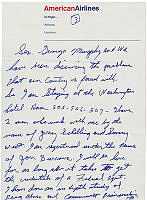 AmericanAirlines
In Flight...
Altitude;
Location;
③
Sen. George Murphy and We
have been discussing the problems
that our Country is faced with
So I am Staying at the Washington
hotel Room 505-506-507- I have
2 men who work with me by the
name of Jerry Schilling and Sonny
West. I am registered under the name
of Jon Burrows. I will be here
for as long as it takes to get
the credentials of a Federal Agent.
I have done an in depth study of
Drug Abuse and Communist Brainwashing